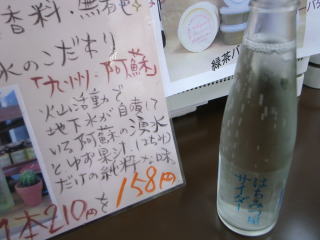 香料・無着色
水のこだわり
「九州・阿蘇」
火山活動で
地下水が自噴して
いる阿蘇の湧水
とゆず果汁、はちみつ
だけの純粋な味
1本210円を
158円
緑茶バ
はちみつ
サイダー